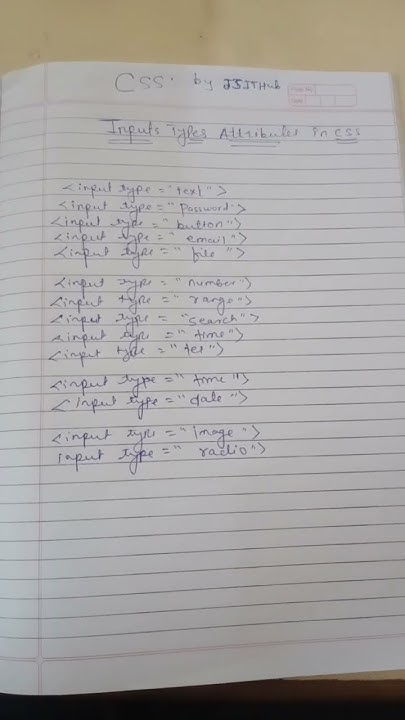 CSS. by JSITHub
Page No.
Date
Inputs Types Attributes in CSS
<input type = "text">
<input type = "Password">
<input type = "button">
<input type = "email">
<input type = "file">
<input type = "number">
<input type = "range">
<input type = "search">
<input type = "time">
<input type = "tel">
<input type = "time">
<input type = "date">
<input type = "image">
input type = "radio">